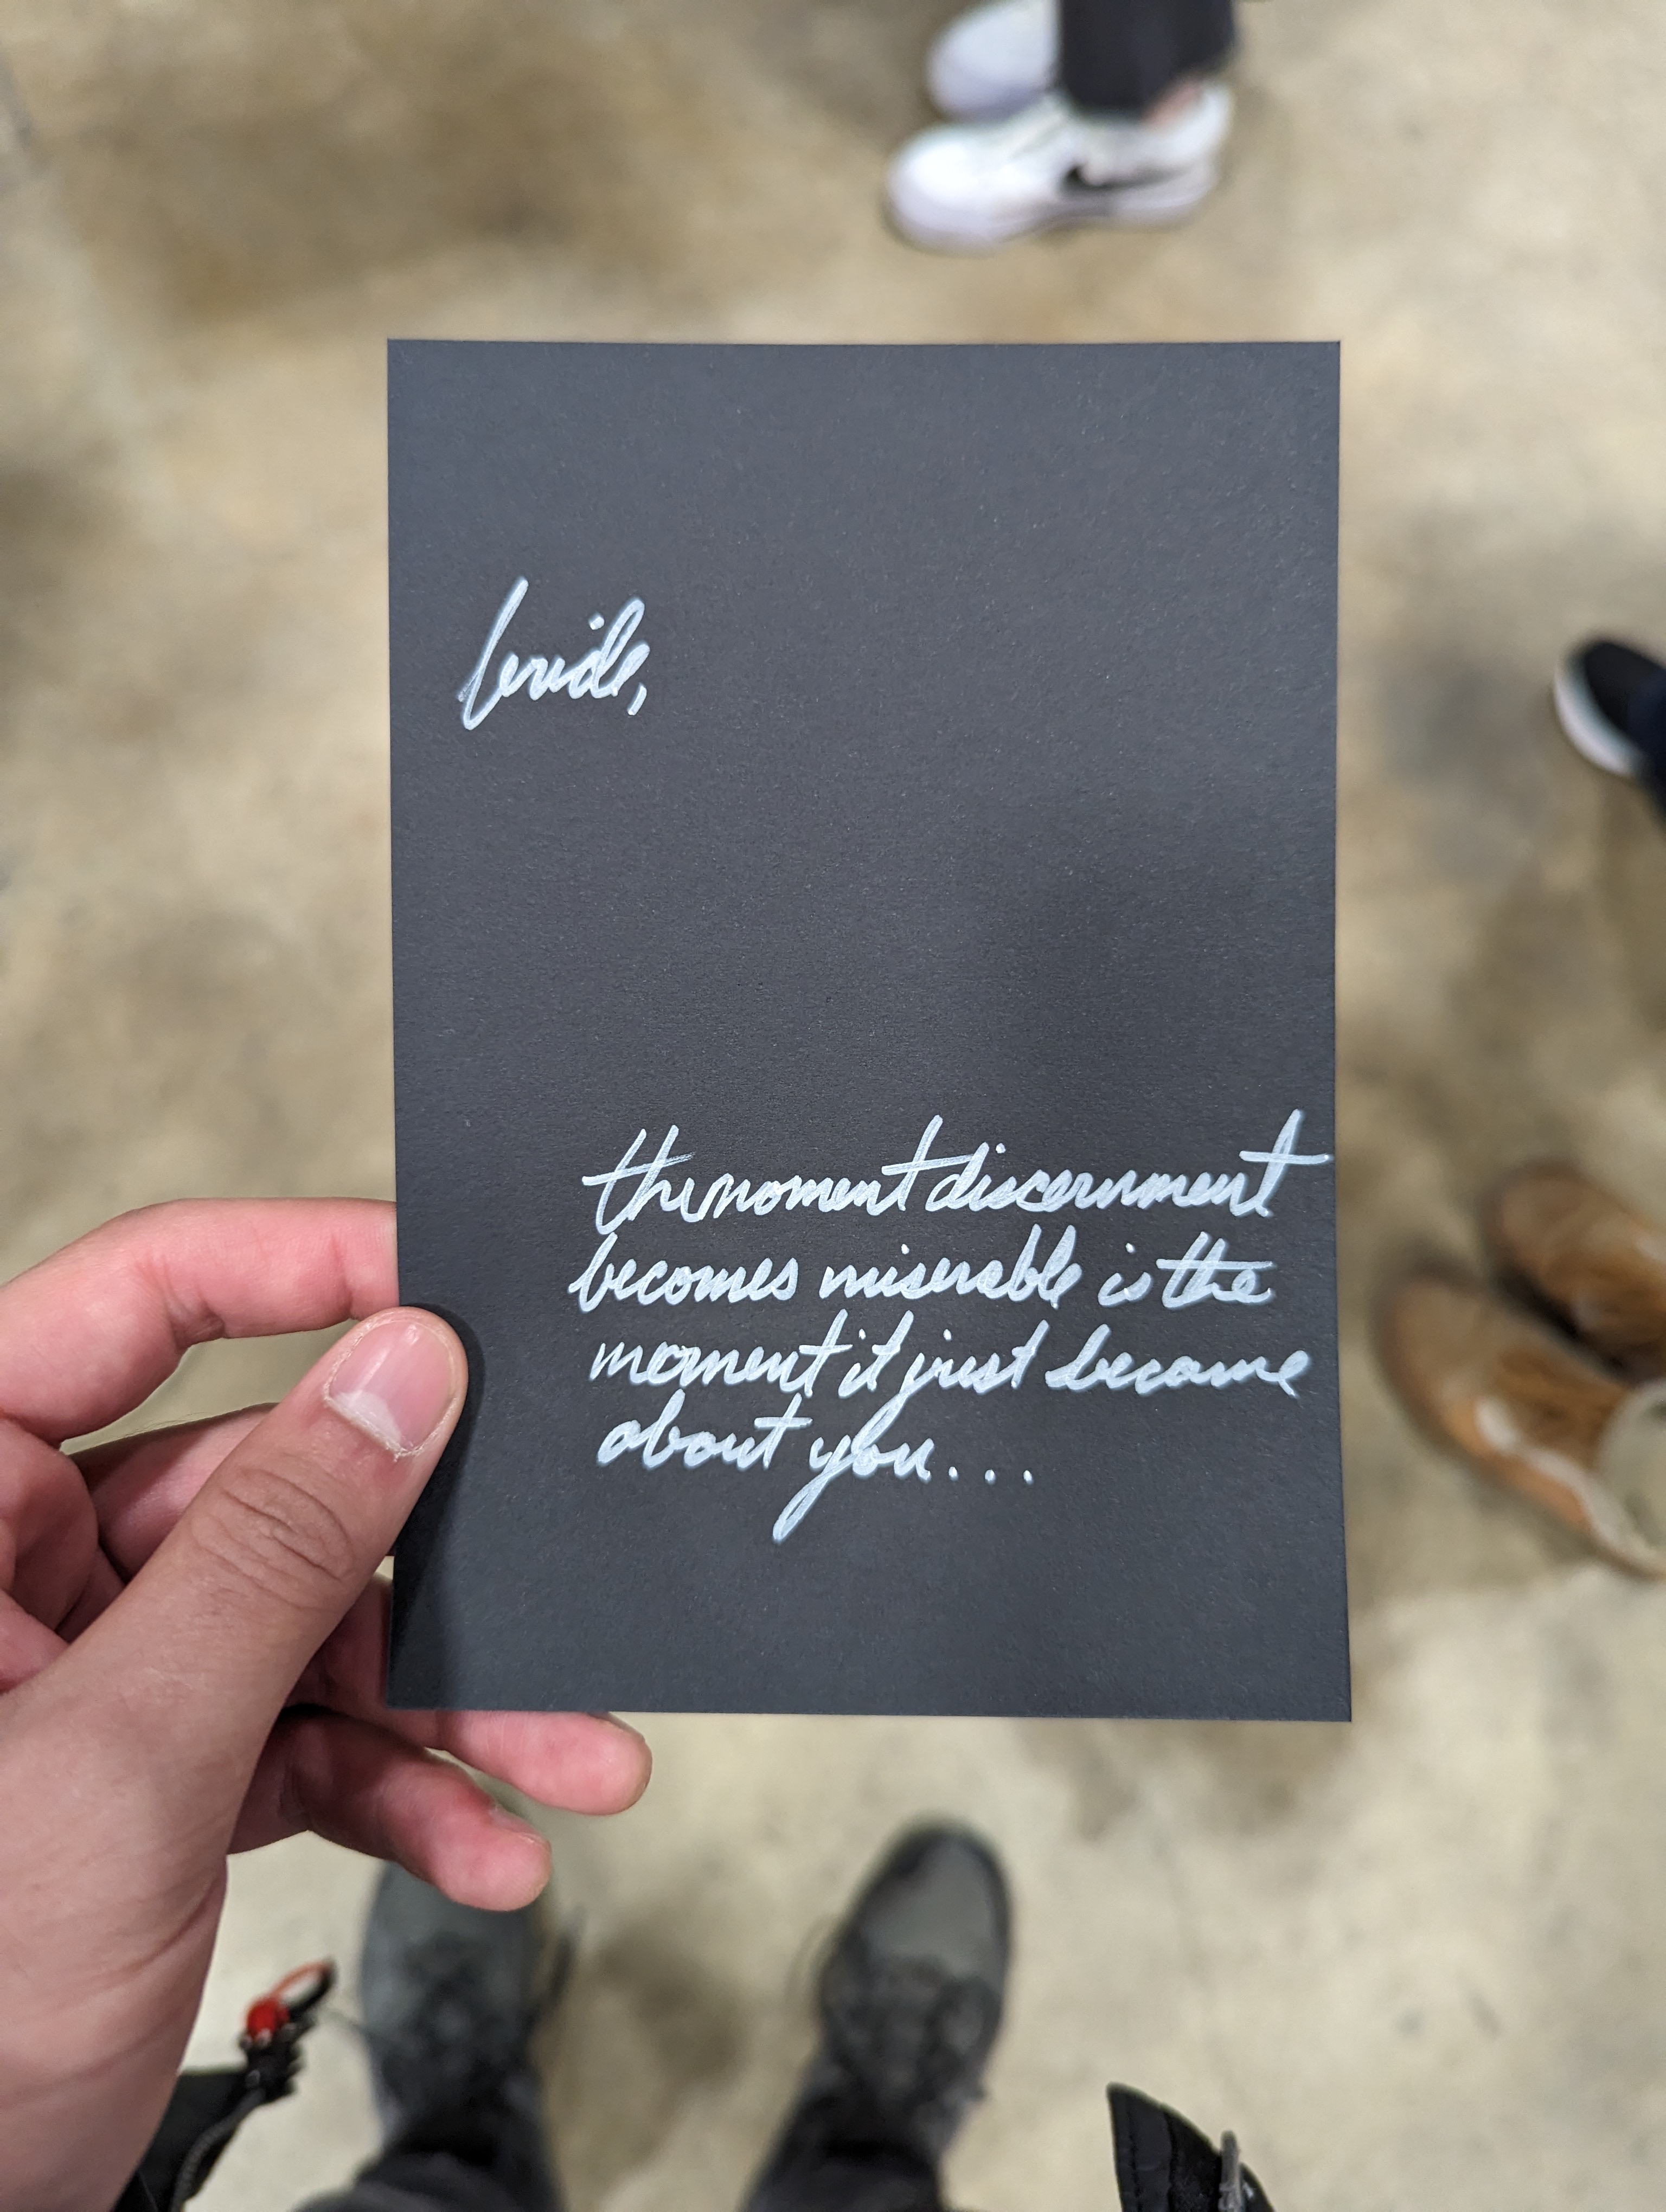 bride,
the moment discernment
becomes miserable is the
moment it just became
about you...